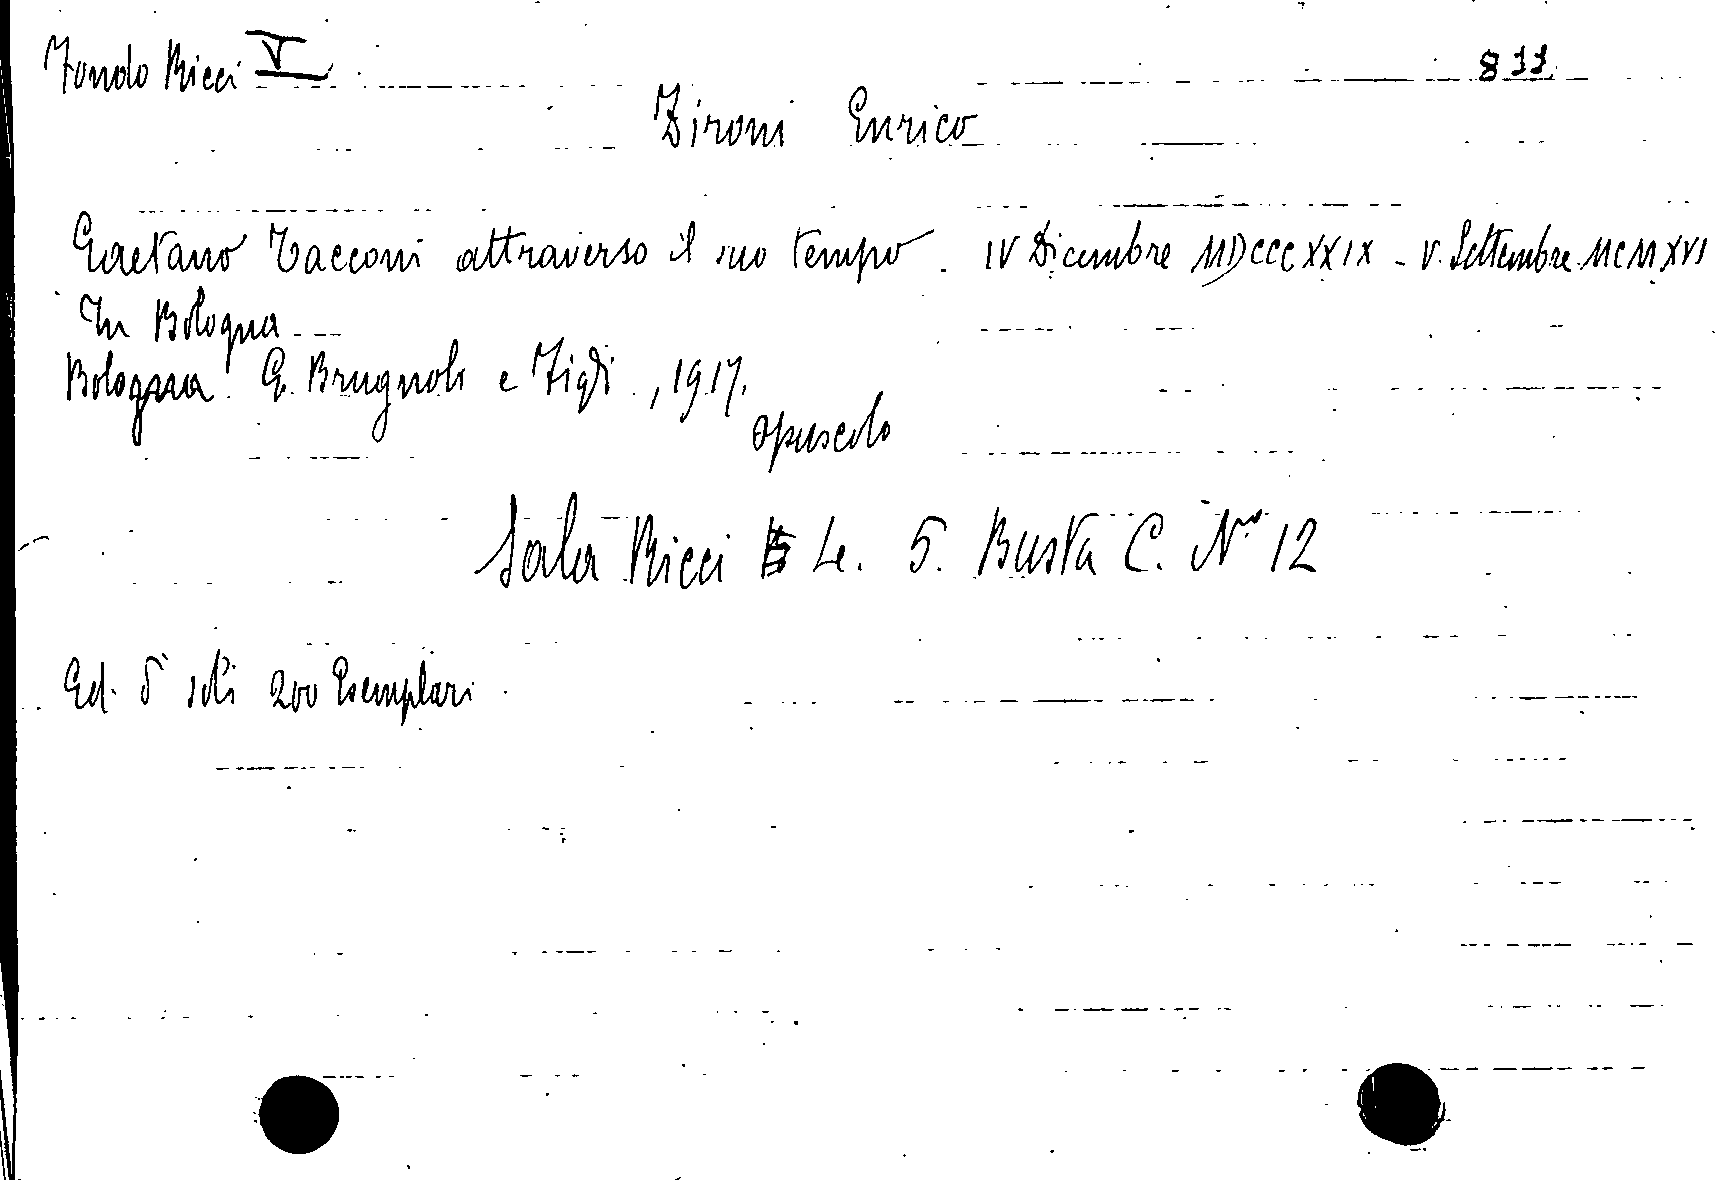 Fondo Ricci V 811
Zironi Enrico
Gaetano Tacconi attraverso il suo tempo. IV Dicembre MDCCCXXIX - V. Settembre MCMXVI
In Bologna
Bologna G. Brugnoli e Figli, 1917.
opuscolo
Sala Ricci Le. 5. Busta C. No 12
Ed. di soli 200 Esemplari